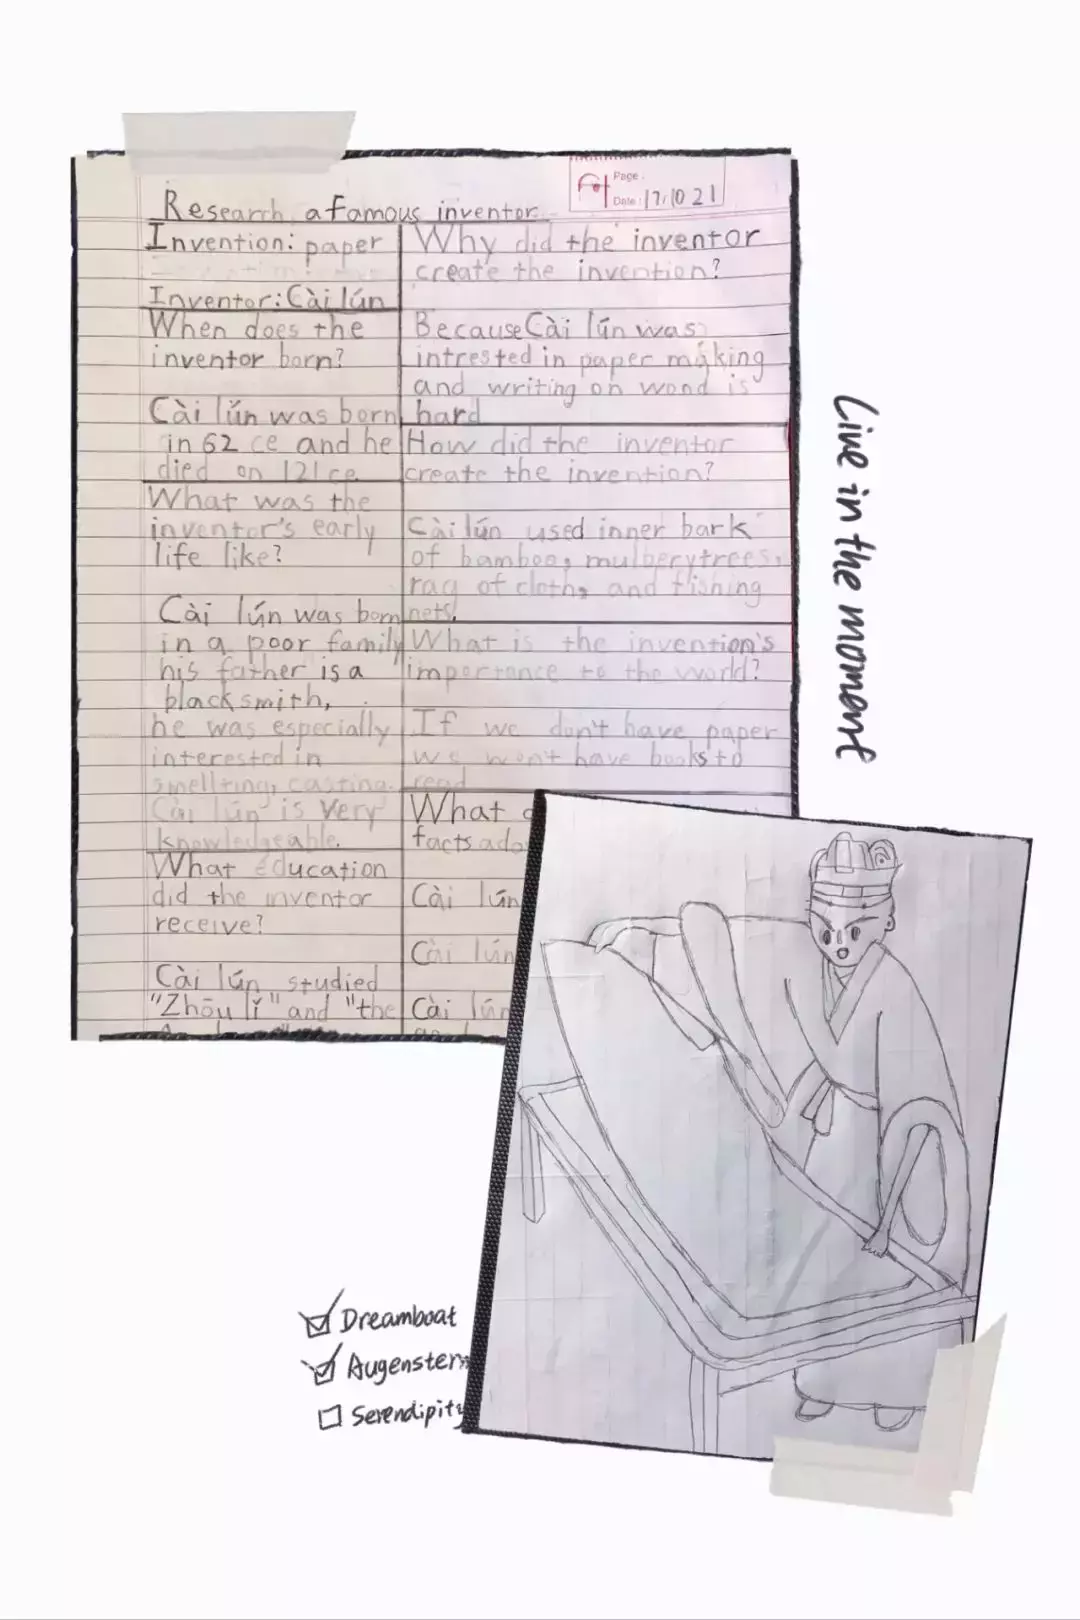 Page :
Date : 17.10 21
Research a famous inventor
Invention: paper
Inventor: Cài lún
When does the
inventor born?
Cài lún was born
in 62 ce and he
died on 121 ce
What was the
inventor's early
life like?
Cài lún was born
in a poor family
his father is a
blacksmith,
he was especially
interested in
smellting, casting.
Cài lún is very
knowledgeable.
What education
did the inventor
receive?
Cài lún studied
"Zhōu lǐ" and "the
Why did the inventor
create the invention?
Because Cài lún was
intrested in paper making
and writing on wood is
hard
How did the inventor
create the invention?
Cài lún used inner bark
of bamboo, mulberytrees,
rag of cloth, and fishing
nets
What is the invention's
importance to the world?
If we don't have paper
we won't have books to
read
What
facts
Cài lún
Cài lún
Cài lún
Live in the moment
Dreamboat
Augenstern
Serendipity